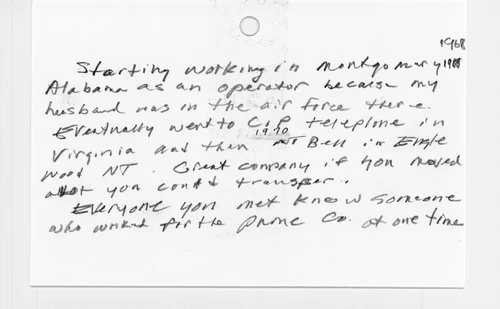 1968
Starting working in Montgomary 1968
Alabama as an operator because my
husband was in the air force there.
Eventually went to C&P telephone in
1970
Virginia and then Bell in Engle
wood NJ. Great company if you moved
alot you could transfer.
Everyone you met knew someone
who worked for the phone Co. at one time